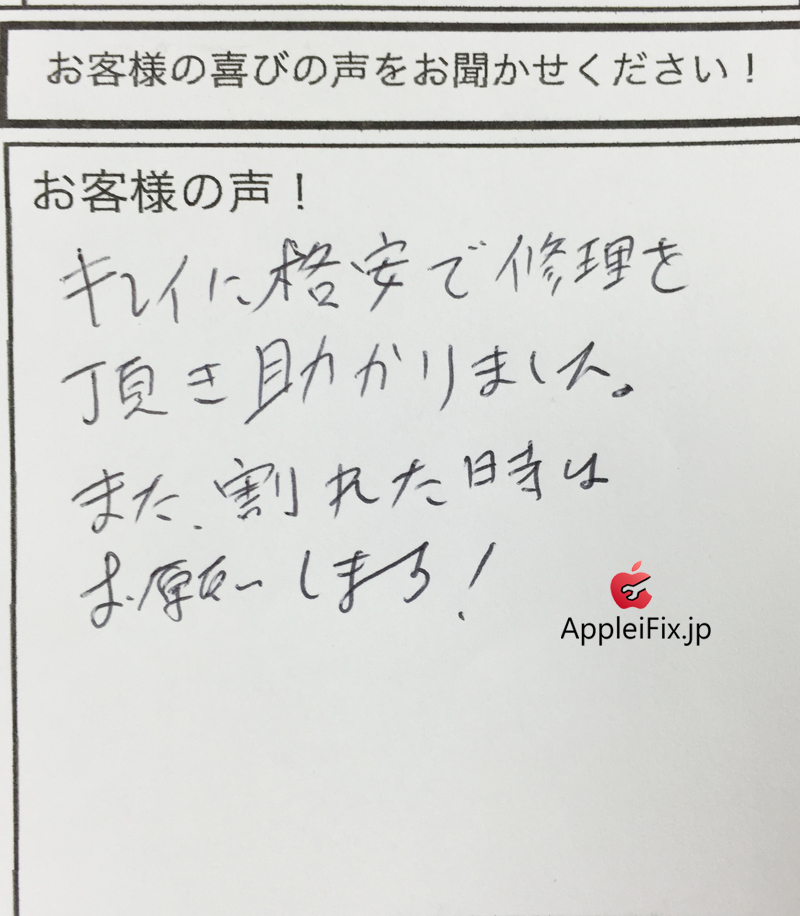 お客様の喜びの声をお聞かせください！
お客様の声！
キレイに格安で修理を
頂き助かりました。
また、割れた時は
お願いします！
AppleiFix.jp